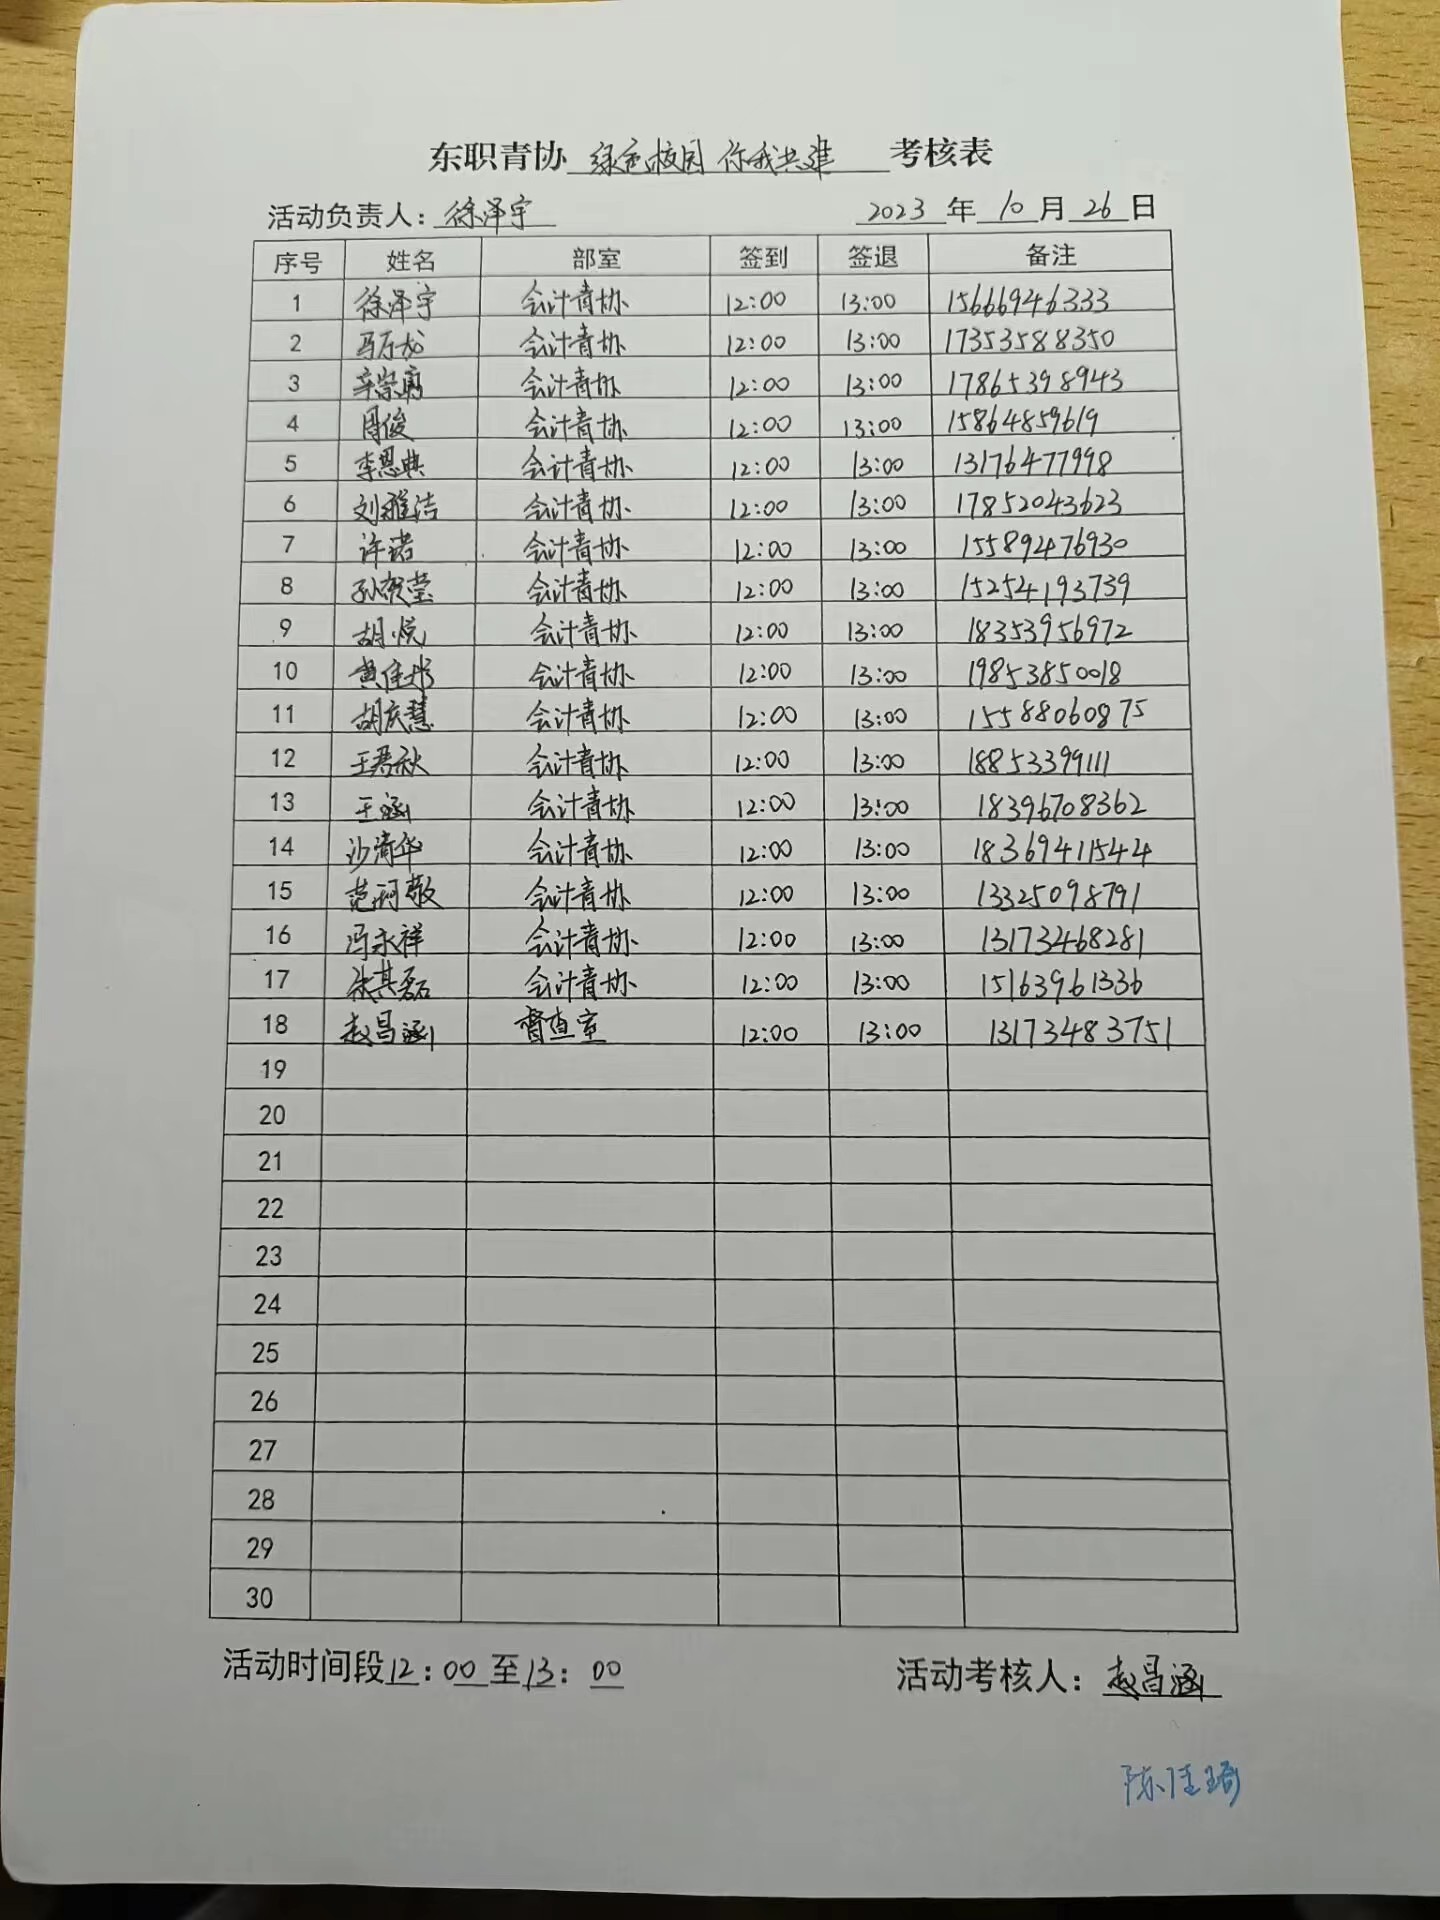 东职青协 绿色校园 你我共建 考核表
活动负责人：徐泽宇 2023 年 10 月 26 日
序号 姓名 部室 签到 签退 备注
1 徐泽宇 会计青协 12:00 13:00 15666946333
2 马万龙 会计青协 12:00 13:00 17353588350
3 辛崇勇 会计青协 12:00 13:00 17865398943
4 周俊 会计青协 12:00 13:00 15864859619
5 李恩典 会计青协 12:00 13:00 13176477998
6 刘雅洁 会计青协 12:00 13:00 17852043623
7 许诺 会计青协 12:00 13:00 15589476930
8 孙贺莹 会计青协 12:00 13:00 15254193739
9 胡悦 会计青协 12:00 13:00 18353956972
10 黄佳彤 会计青协 12:00 13:00 19853850018
11 胡庆慧 会计青协 12:00 13:00 15588060875
12 王君秋 会计青协 12:00 13:00 18853399111
13 王涵 会计青协 12:00 13:00 18396708362
14 沙清华 会计青协 12:00 13:00 18369411544
15 范珂敬 会计青协 12:00 13:00 13325098791
16 冯永祥 会计青协 12:00 13:00 13173468281
17 其磊 会计青协 12:00 13:00 15163961336
18 赵昌涵 督查室 12:00 13:00 13173483751
19
20
21
22
23
24
25
26
27
28
29
30
活动时间段12：00至13：00 活动考核人：赵昌涵
陈佳琦